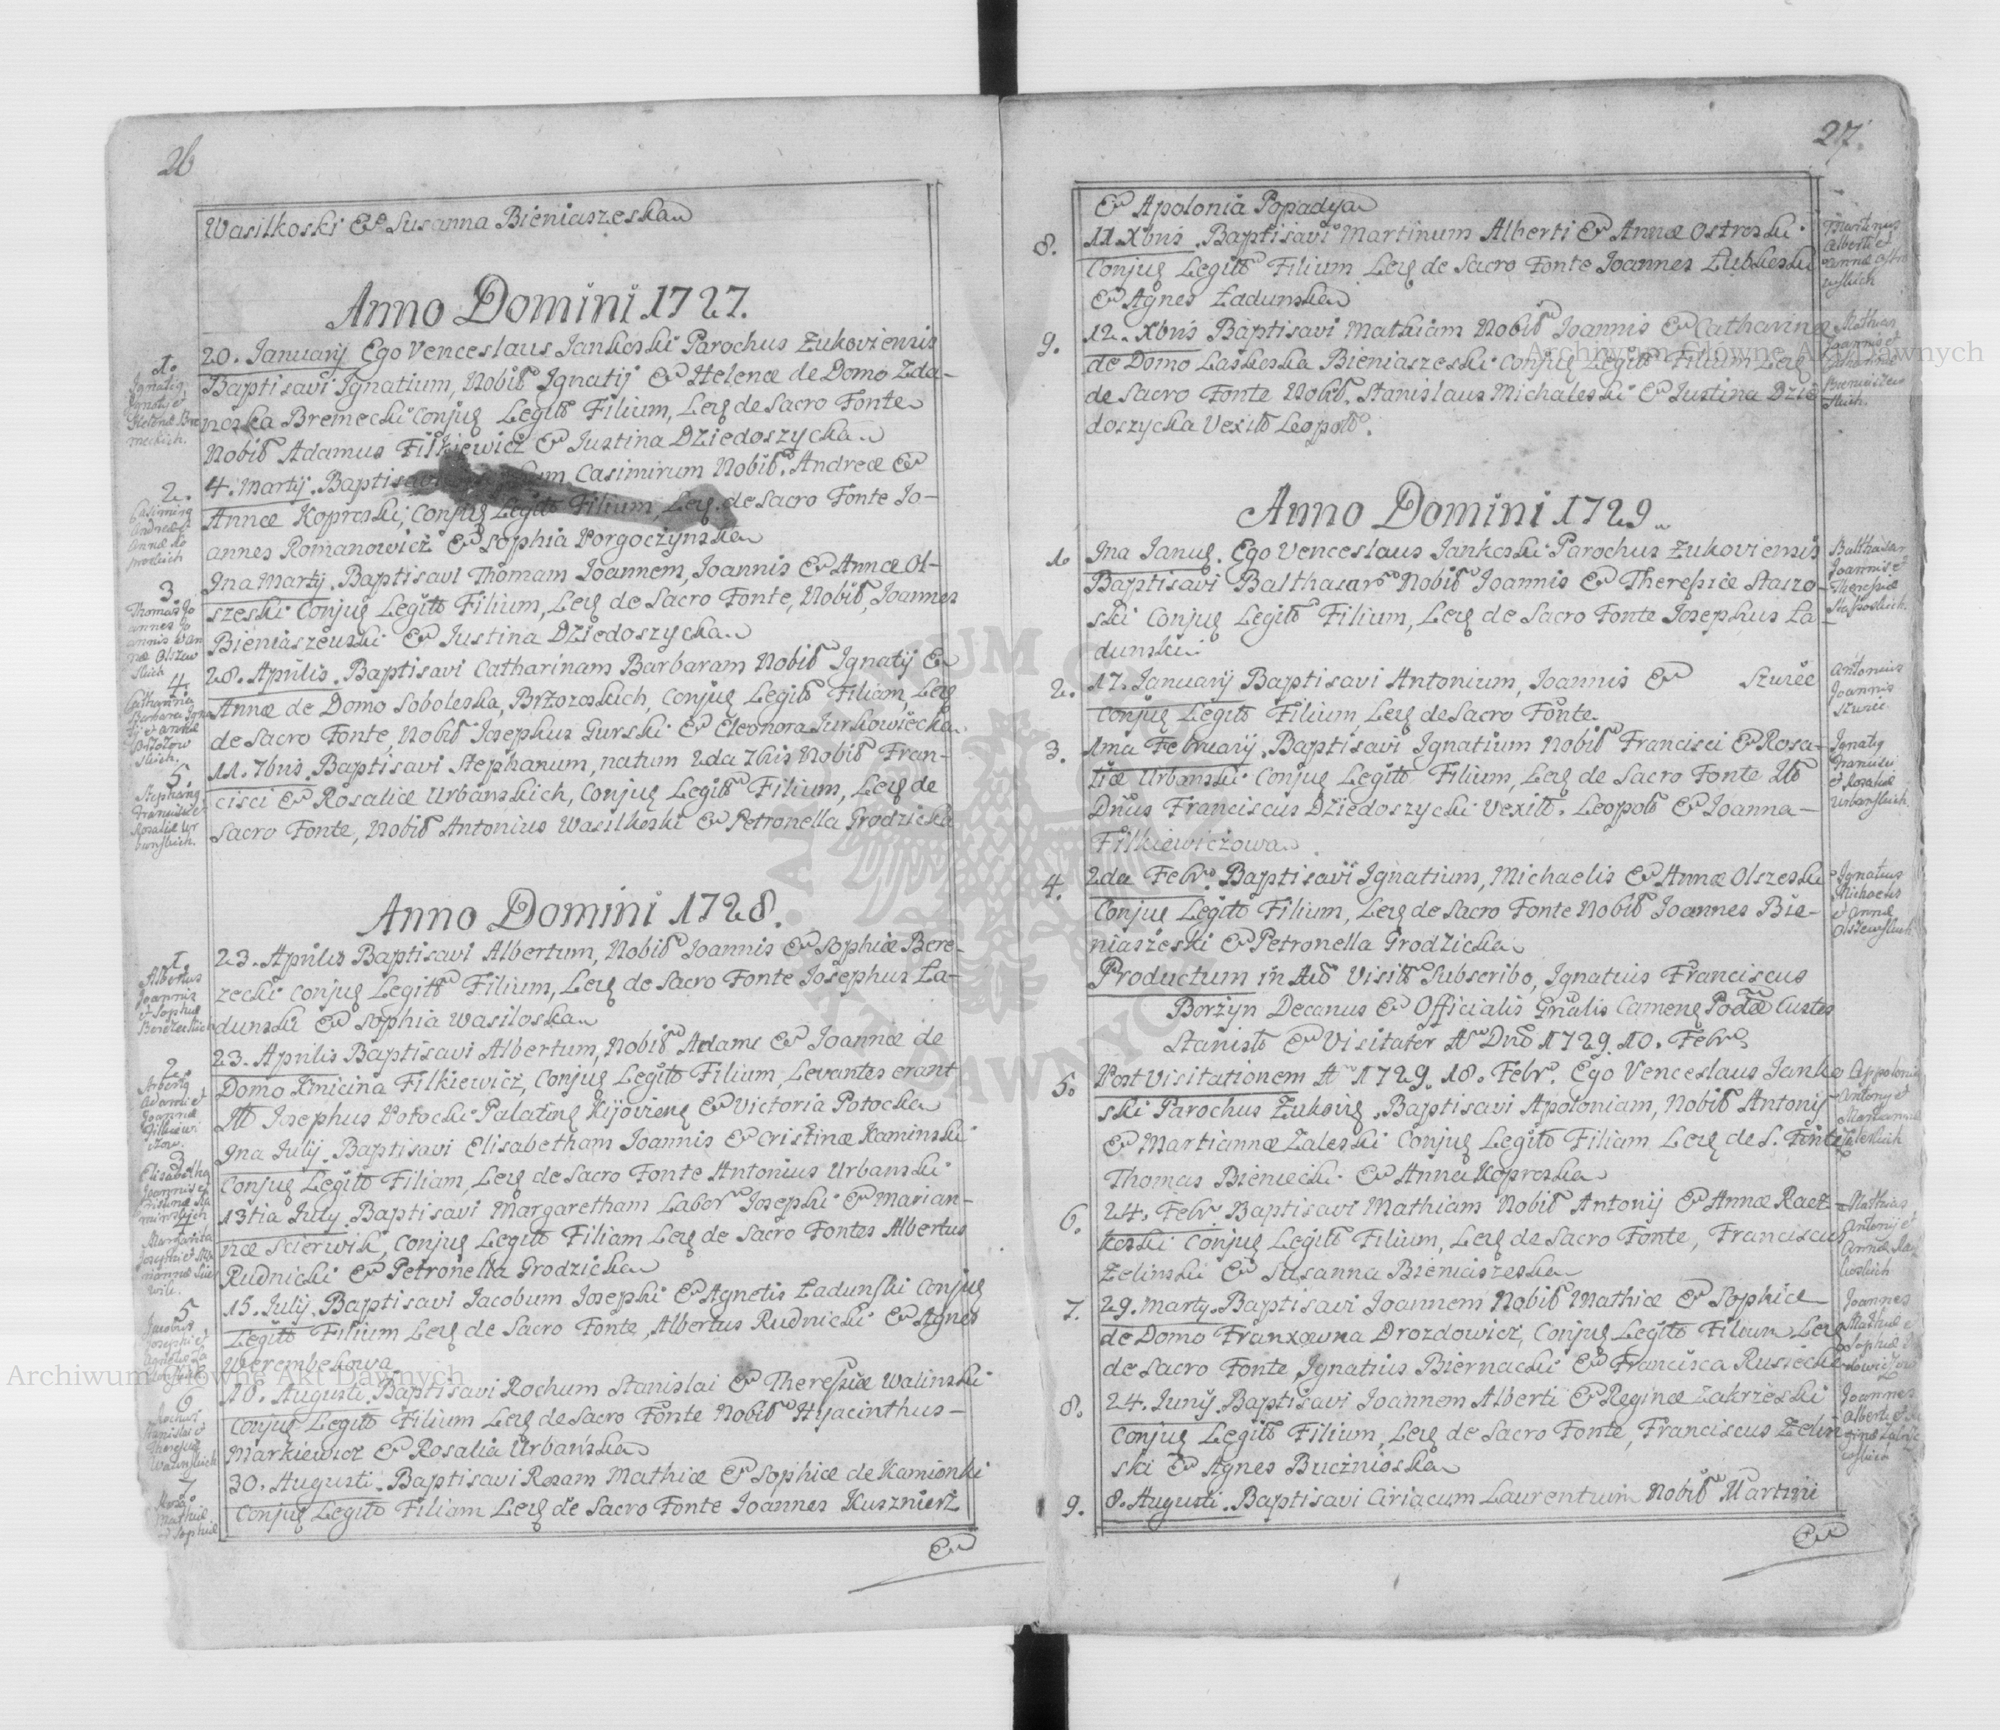 26
Wasilkoski & Susanna Bieniaszeska
Anno Domini 1727.
1.
Ignatig
Ignatij et
Helenæ Bre
meckich.
20. Januarij Ego Venceslaus Jankoski Parochus Żukoviensis
Baptisavi Ignatium, Nobil. Ignatij & Helenæ de Domo Zda-
noska Bremecki Conjug Legitō Filium, Leug de Sacro Fonte
Nobil. Adamus Filkiewicz & Justina Dziedoszycka
2.
Casimirg
Andreæ et
Annæ Ko
proskich
4. Martij. Baptisavi Casimirum Nobil. Andreæ &
Annæ Koproski, Conjug Legitō Filium, Leug. de Sacro Fonte Jo-
annes Romanowicz & Sophia Porgoczynska
3.
Thomas Jo
annes Jo
annis & An
næ Olszew
skich
9na Martij. Baptisavi Thomam Joannem, Joannis & Annæ Ol-
szeski Conjug Legitō Filium, Leug de Sacro Fonte, Nobil, Joannes
Bieniaszewski & Justina Dziedoszycka
4.
Catharina
Barbara Igna
tij et Annæ
Brzozow
skich.
28. Aprilis. Baptisavi Catharinam Barbaram Nobil Ignatij &
Annæ de Domo Soboleska, Brzozoskich, Conjug Legitō Filiam, Leug
de Sacro Fonte, Nobil Josephus Gurski & Eleonora Jurkowiecka.
5.
Stephang
Francisci et
Rosaliæ Ur
banskich.
11. 7bris. Baptisavi Stephanum, natum 2da 7bris Nobil Fran-
cisci & Rosaliæ Urbanskich, Conjug Legitō Filium, Leug de
Sacro Fonte, Nobil Antonius Wasilkoski & Petronella Grodzicka
Anno Domini 1728.
1.
Albertus
Joannis
et Sophiæ
Berezeckich
23. Aprilis Baptisavi Albertum, Nobil Joannis & Sophiæ Bere-
zecki Conjug Legitō Filium, Leug de Sacro Fonte Josephus Ła-
dunski & Sophia Wasiloska
2.
Albertg
Adami et
Joannæ
Filkiewi
czow.
23. Aprilis Baptisavi Albertum, Nobil Adami & Joannæ de
Domo Knicina Filkiewicz, Conjug Legitō Filium, Levantes erant
Josephus Potocki Palating Kijovieng & Victoria Potocka
3
Elisabetha
Joannis et
Cristinæ Ka
minskich
9na Julij. Baptisavi Elisabetham Joannis & Cristinæ Kaminski
Conjug Legitō Filiam, Leug de Sacro Fonte Antonius Urbanski
4
Margarita
Josephi et Ma
riannæ Scier
wik.
13tia July. Baptisavi Margaretham Labor Josephi & Marian-
næ Scierwik, Conjug Legitō Filiam Leug de Sacro Fontes Albertus
Rudnicki & Petronella Grodzicka
5
Jacobus
Josephi et
Agnetis Ła
dunskich
15. Julij. Baptisavi Jacobum Josephi & Agnetis Ładunski Conjug
Legitō Filium Leug de Sacro Fonte, Albertus Rudnicki & Agnes
Werembekowa
6
Rochus
Stanislai et
Theresiæ
Walinskich
10. Augusti. Baptisavi Rochum Stanislai & Theresiæ Walinski
Conjug Legitō Filium Leug de Sacro Fonte Nobil Hyacinthus-
Markiewicz & Rosalia Urbańska
7
Rosa
Mathiæ
et Sophiæ
30. Augusti. Baptisavi Rosam Mathiæ & Sophiæ de Kamionki
Conjug Legitō Filiam Leug de Sacro Fonte Joannes Kusznierz
&
27.
& Apolonia Popadya
8.
11. Xbris. Baptisavi Martinum Alberti & Annæ Ostroski
Conjug Legitō Filium Leug de Sacro Fonte Joannes Łubkoski
& Agnes Ładunska
Martinus
Alberti et
Annæ Ostro
wskich
9.
12. Xbris Baptisavi Mathiam Nobil Joannis & Catharinæ
de Domo Laskoska Bieniaszeski Conjug Legitō Filium Leug
de Sacro Fonte Nobil. Stanislaus Michaleski & Justina Dzie
doszycka Vexilō Leopolō.
Mathias
Joannis et
Catharinæ
Bieniaszew
skich.
Anno Domini 1729
1
9na Janug. Ego Venceslaus Jankoski Parochus Żukoviensis
Baptisavi Balthasar Nobil Joannis & Theresiæ Staszo
ski Conjug Legitō Filium, Leug de Sacro Fonte Josephus Ła-
dunski
Balthasar
Joannis et
Theresiæ
Staszoskich.
2.
17. Januarij Baptisavi Antonium, Joannis & Szuriec
Conjug Legitō Filium Leug de Sacro Fonte.
Antonius
Joannis
Szuriec.
3.
1ma February. Baptisavi Ignatium Nobil Francisci & Rosa-
liæ Urbanski Conjug Legitō Filium, Leug de Sacro Fonte
Dnus Franciscus Dziedoszycki Vexilō. Leopolō & Joanna-
Filkiewiczowa
Ignatig
Francisci
et Rosaliæ
Urbanskich.
4.
2da Febr. Baptisavi Ignatium, Michaelis & Annæ Olszeski
Conjug Legitō Filium, Leug de Sacro Fonte Nobil Joannes Bie-
niaszeski & Petronella Grodzicka
Ignatius
Michaelis
et Annæ
Olszewskich
Productum in Visitō Subscribo, Ignatius Franciscus
Borzyn Decanus & Officialis Gnalis Cameneg Custos
Stanislō & Visitator Dnō 1729. 10. Febr.
5.
Post Visitationem A 1729. 18. Febr. Ego Venceslaus Janko
ski Parochus Żukovig. Baptisavi Apoloniam, Nobil Antonij
& Martiannæ Zaleski Conjug Legitō Filiam Leug de S. Fonte
Thomas Bieniecki & Anna Koproska
Appolonia
Antony et
Martiannæ
Zaleskich
6.
24. Febr Baptisavi Mathiam Nobil Antonij & Annæ Racz
koski Conjug Legitō Filium, Leug de Sacro Fonte, Franciscus
Zelinski & Susanna Bieniaszeska
Mathias
Antonij et
Annæ Ra
koskich
7.
29. Marty. Baptisavi Joannem Nobil Mathiæ & Sophiæ
de Domo Franxowna Drozdowicz, Conjug Legitō Filium Leug
de Sacro Fonte Ignatius Biernacki & Francisca Rusiecka
Joannes
Mathiæ et
Sophiæ
8.
24. Junij. Baptisavi Joannem Alberti & Reginæ Zakrzeski
Conjug Legitō Filium, Leug de Sacro Fonte, Franciscus Zelin-
ski & Agnes Bucznioska
Joannes
Alberti et Re
ginæ Zakrze
wskich
9.
8. Augusti. Baptisavi Ciriacum Laurentium Nobil Martini
&
Archiwum Główne Akt Dawnych
Archiwum Główne Akt Dawnych
ARCHIWUM GŁÓWNE AKT DAWNYCH